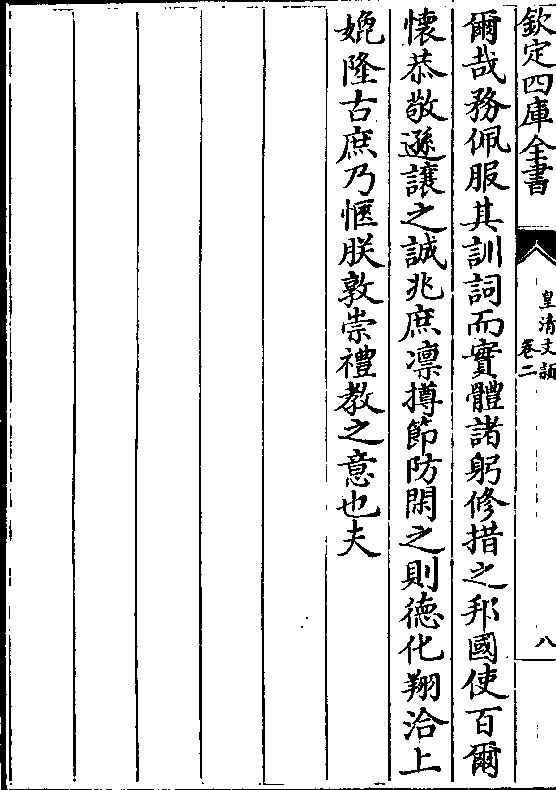 欽定四庫全書
皇清文穎
卷二
八
爾哉務佩服其訓詞而實體諸躬修措之邦國使百爾
懷恭敬遜讓之誠兆庶凛撙節防閑之則德化翔洽上
媲隆古庶乃愜朕敦崇禮教之意也夫